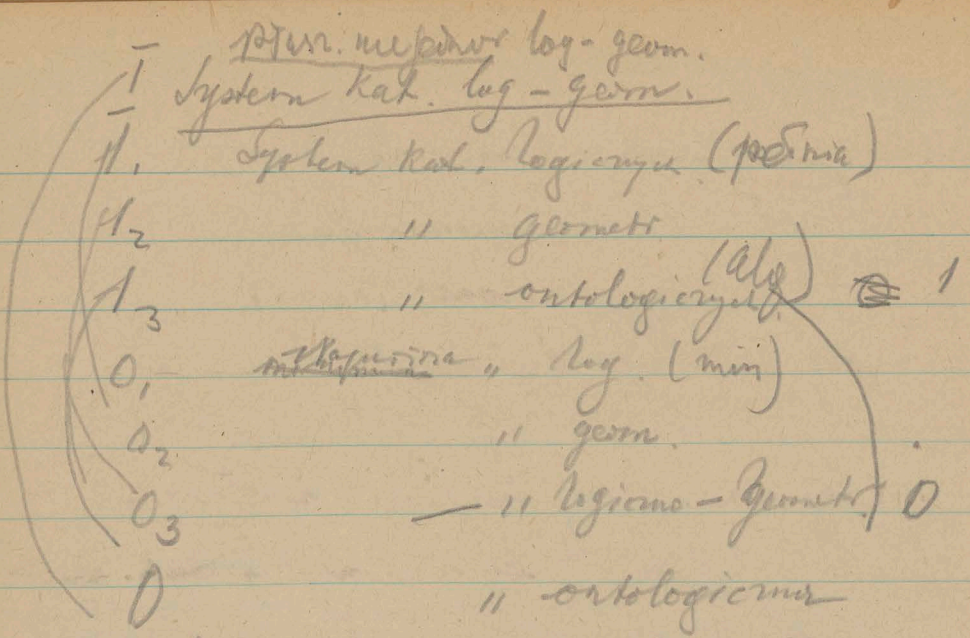 I log-geom.
System kat. log-geom.
1, System kat. logicznych (pełnia)
1₂ " geometr
1₃ " ontologicznych (alg) 1
0, " log. (min)
0₂ " geom.
0₃ — " logiczno-geometr. 0
0 " ontologiczna